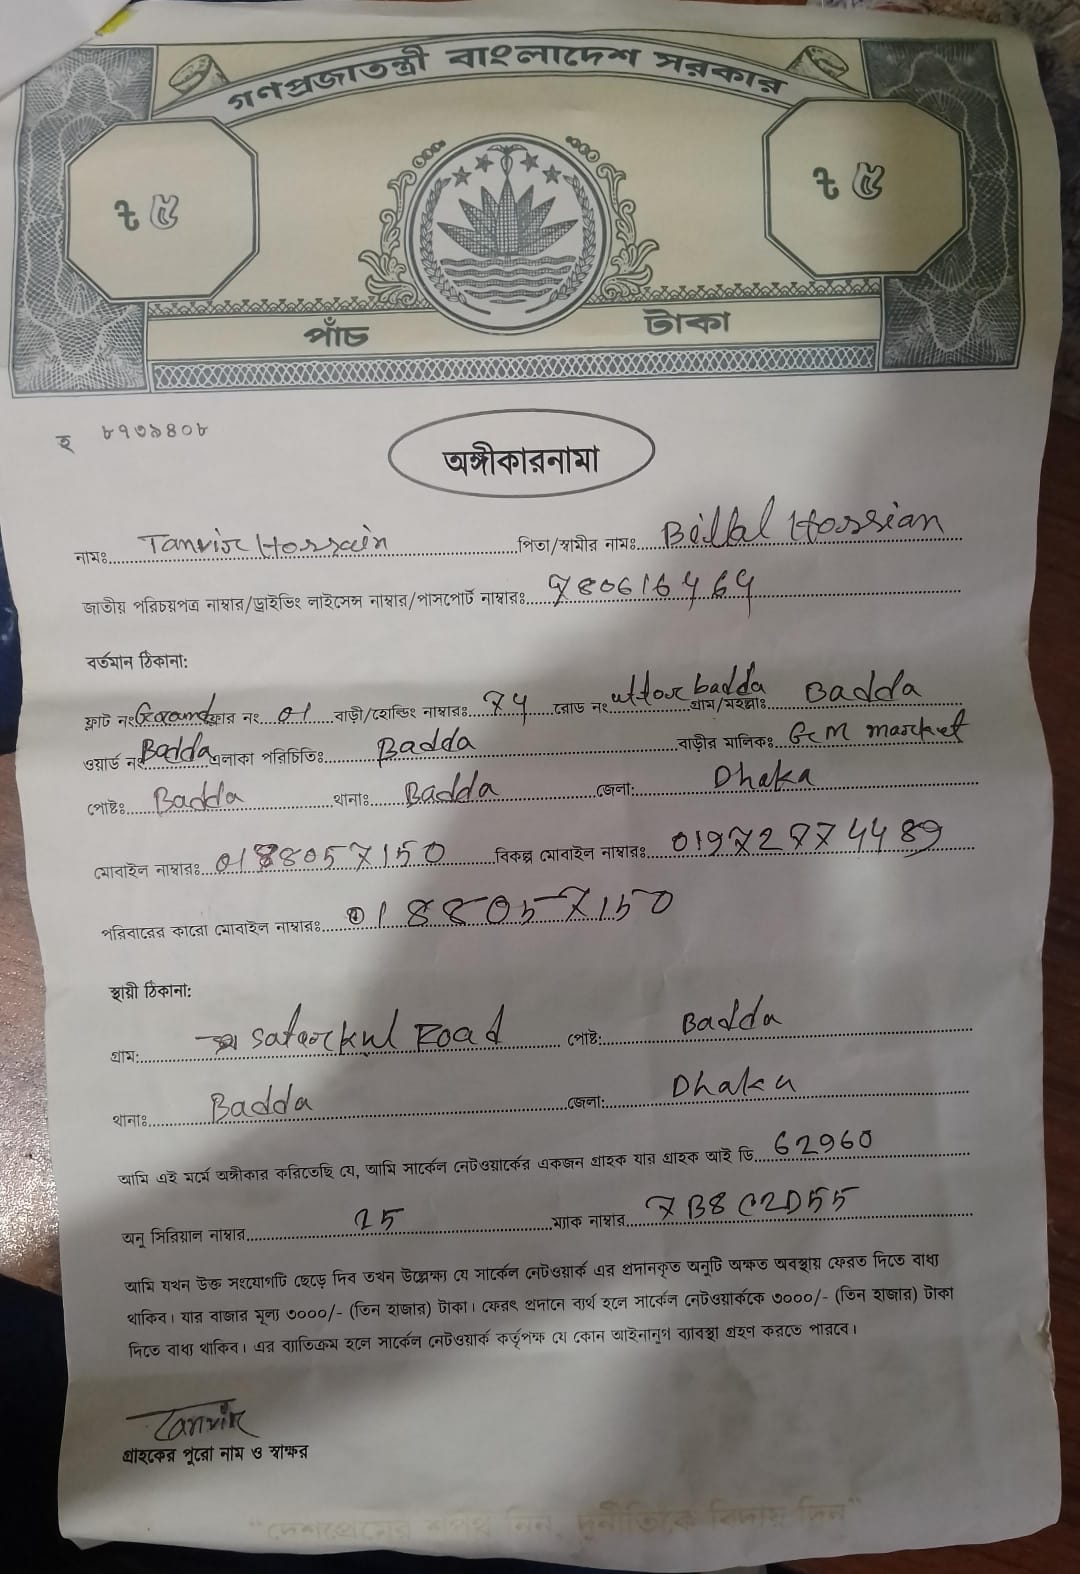 গণপ্রজাতন্ত্রী বাংলাদেশ সরকার
৳ ৫ ৳ ৫
পাঁচ টাকা
হ ৮৭৩৯৪০৮
অঙ্গীকারনামা
নামঃ Tanvir Hossain পিতা/স্বামীর নামঃ Billal Hossian
জাতীয় পরিচয়পত্র নাম্বার/ড্রাইভিং লাইসেন্স নাম্বার/পাসপোর্ট নাম্বারঃ
বর্তমান ঠিকানা:
ফ্লাট নং Ground ফ্লোর নং 01 বাড়ী/হোল্ডিং নাম্বারঃ রোড নং uttor badda গ্রাম/মহল্লাঃ Badda
ওয়ার্ড নং Badda এলাকা পরিচিতিঃ Badda বাড়ীর মালিকঃ GM market
পোষ্টঃ Badda থানাঃ Badda জেলা: Dhaka
মোবাইল নাম্বারঃ 0188057150 বিকল্প মোবাইল নাম্বারঃ
পরিবারের কারো মোবাইল নাম্বারঃ 0188057150
স্থায়ী ঠিকানা:
গ্রাম: Satarkul Road পোষ্ট: Badda
থানাঃ Badda জেলা: Dhaka
আমি এই মর্মে অঙ্গীকার করিতেছি যে, আমি সার্কেল নেটওয়ার্কের একজন গ্রাহক যার গ্রাহক আই ডি 62960
অনু সিরিয়াল নাম্বার 25 ম্যাক নাম্বার 7B8C2D55
আমি যখন উক্ত সংযোগটি ছেড়ে দিব তখন উল্লেক্ষ্য যে সার্কেল নেটওয়ার্ক এর প্রদানকৃত অনুটি অক্ষত অবস্থায় ফেরত দিতে বাধ্য
থাকিব। যার বাজার মূল্য ৩০০০/- (তিন হাজার) টাকা। ফেরৎ প্রদানে ব্যর্থ হলে সার্কেল নেটওয়ার্ককে ৩০০০/- (তিন হাজার) টাকা
দিতে বাধ্য থাকিব। এর ব্যাতিক্রম হলে সার্কেল নেটওয়ার্ক কর্তৃপক্ষ যে কোন আইনানুগ ব্যাবস্থা গ্রহণ করতে পারবে।
Tanvir
গ্রাহকের পুরো নাম ও স্বাক্ষর
"দেশপ্রেমের শপথ নিন, দুর্নীতিকে বিদায় দিন"